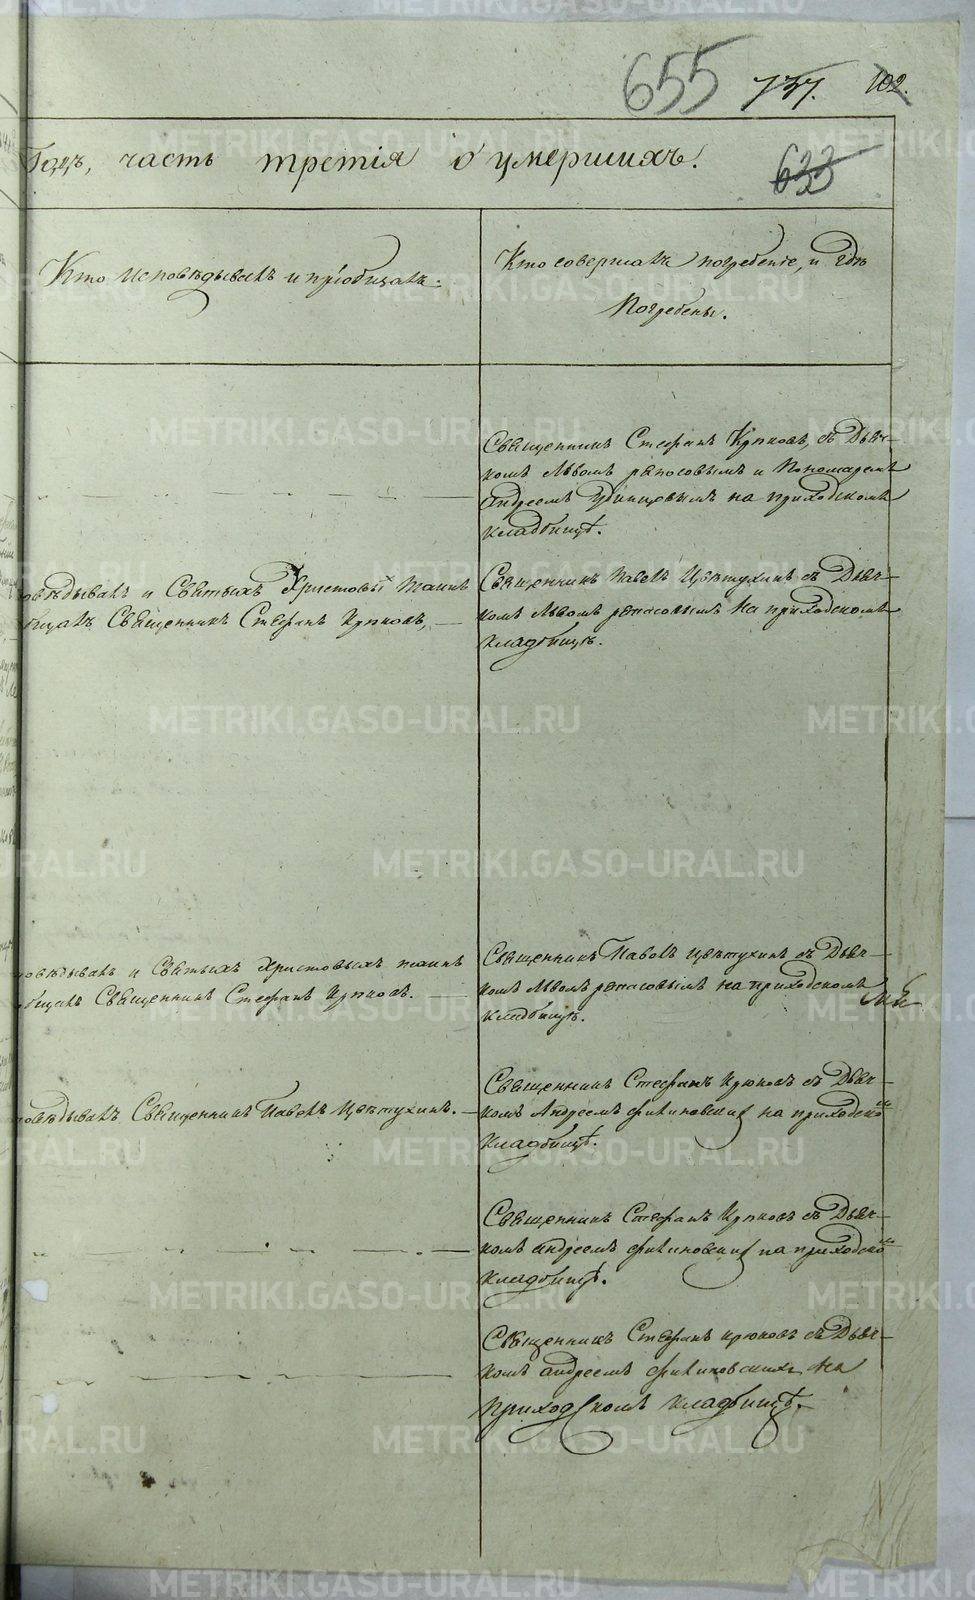 655 737. 102.
Годъ, часть третія о умершихъ.
633
Кто исповѣдывалъ и пріобщалъ.
Кто совершалъ погребеніе, и гдѣ
погребены.
Священникъ Стефанъ Крюковъ, съ Дьяч-
комъ Львомъ и Пономаремъ
Андреемъ Удинцевымъ на приходскомъ
кладбищѣ.
овѣдывалъ и Святыхъ Христовыхъ Таинъ
бщалъ Священникъ Стефанъ Крюковъ,
Священникъ Павелъ Цвѣтухинъ съ Дьяч-
комъ Львомъ на приходскомъ
кладбищѣ.
овѣдывалъ и Святыхъ Христовыхъ таинъ
бщалъ Священникъ Стефанъ Крюковъ.
Священникъ Павелъ Цвѣтухинъ съ Дьяч-
комъ Львомъ на приходскомъ
кладбищѣ.
овѣдывалъ Священникъ Павелъ Цвѣтухинъ.
Священникъ Стефанъ Крюковъ съ Дьяч-
комъ Андреемъ на приходскомъ
кладбищѣ.
Священникъ Стефанъ Крюковъ съ Дьяч-
комъ андреемъ на приходскомъ
кладбищѣ.
Священникъ Стефанъ крюковъ съ Дьяч-
комъ андреемъ на
приходскомъ кладбищѣ.
METRIKI.GASO-URAL.RU